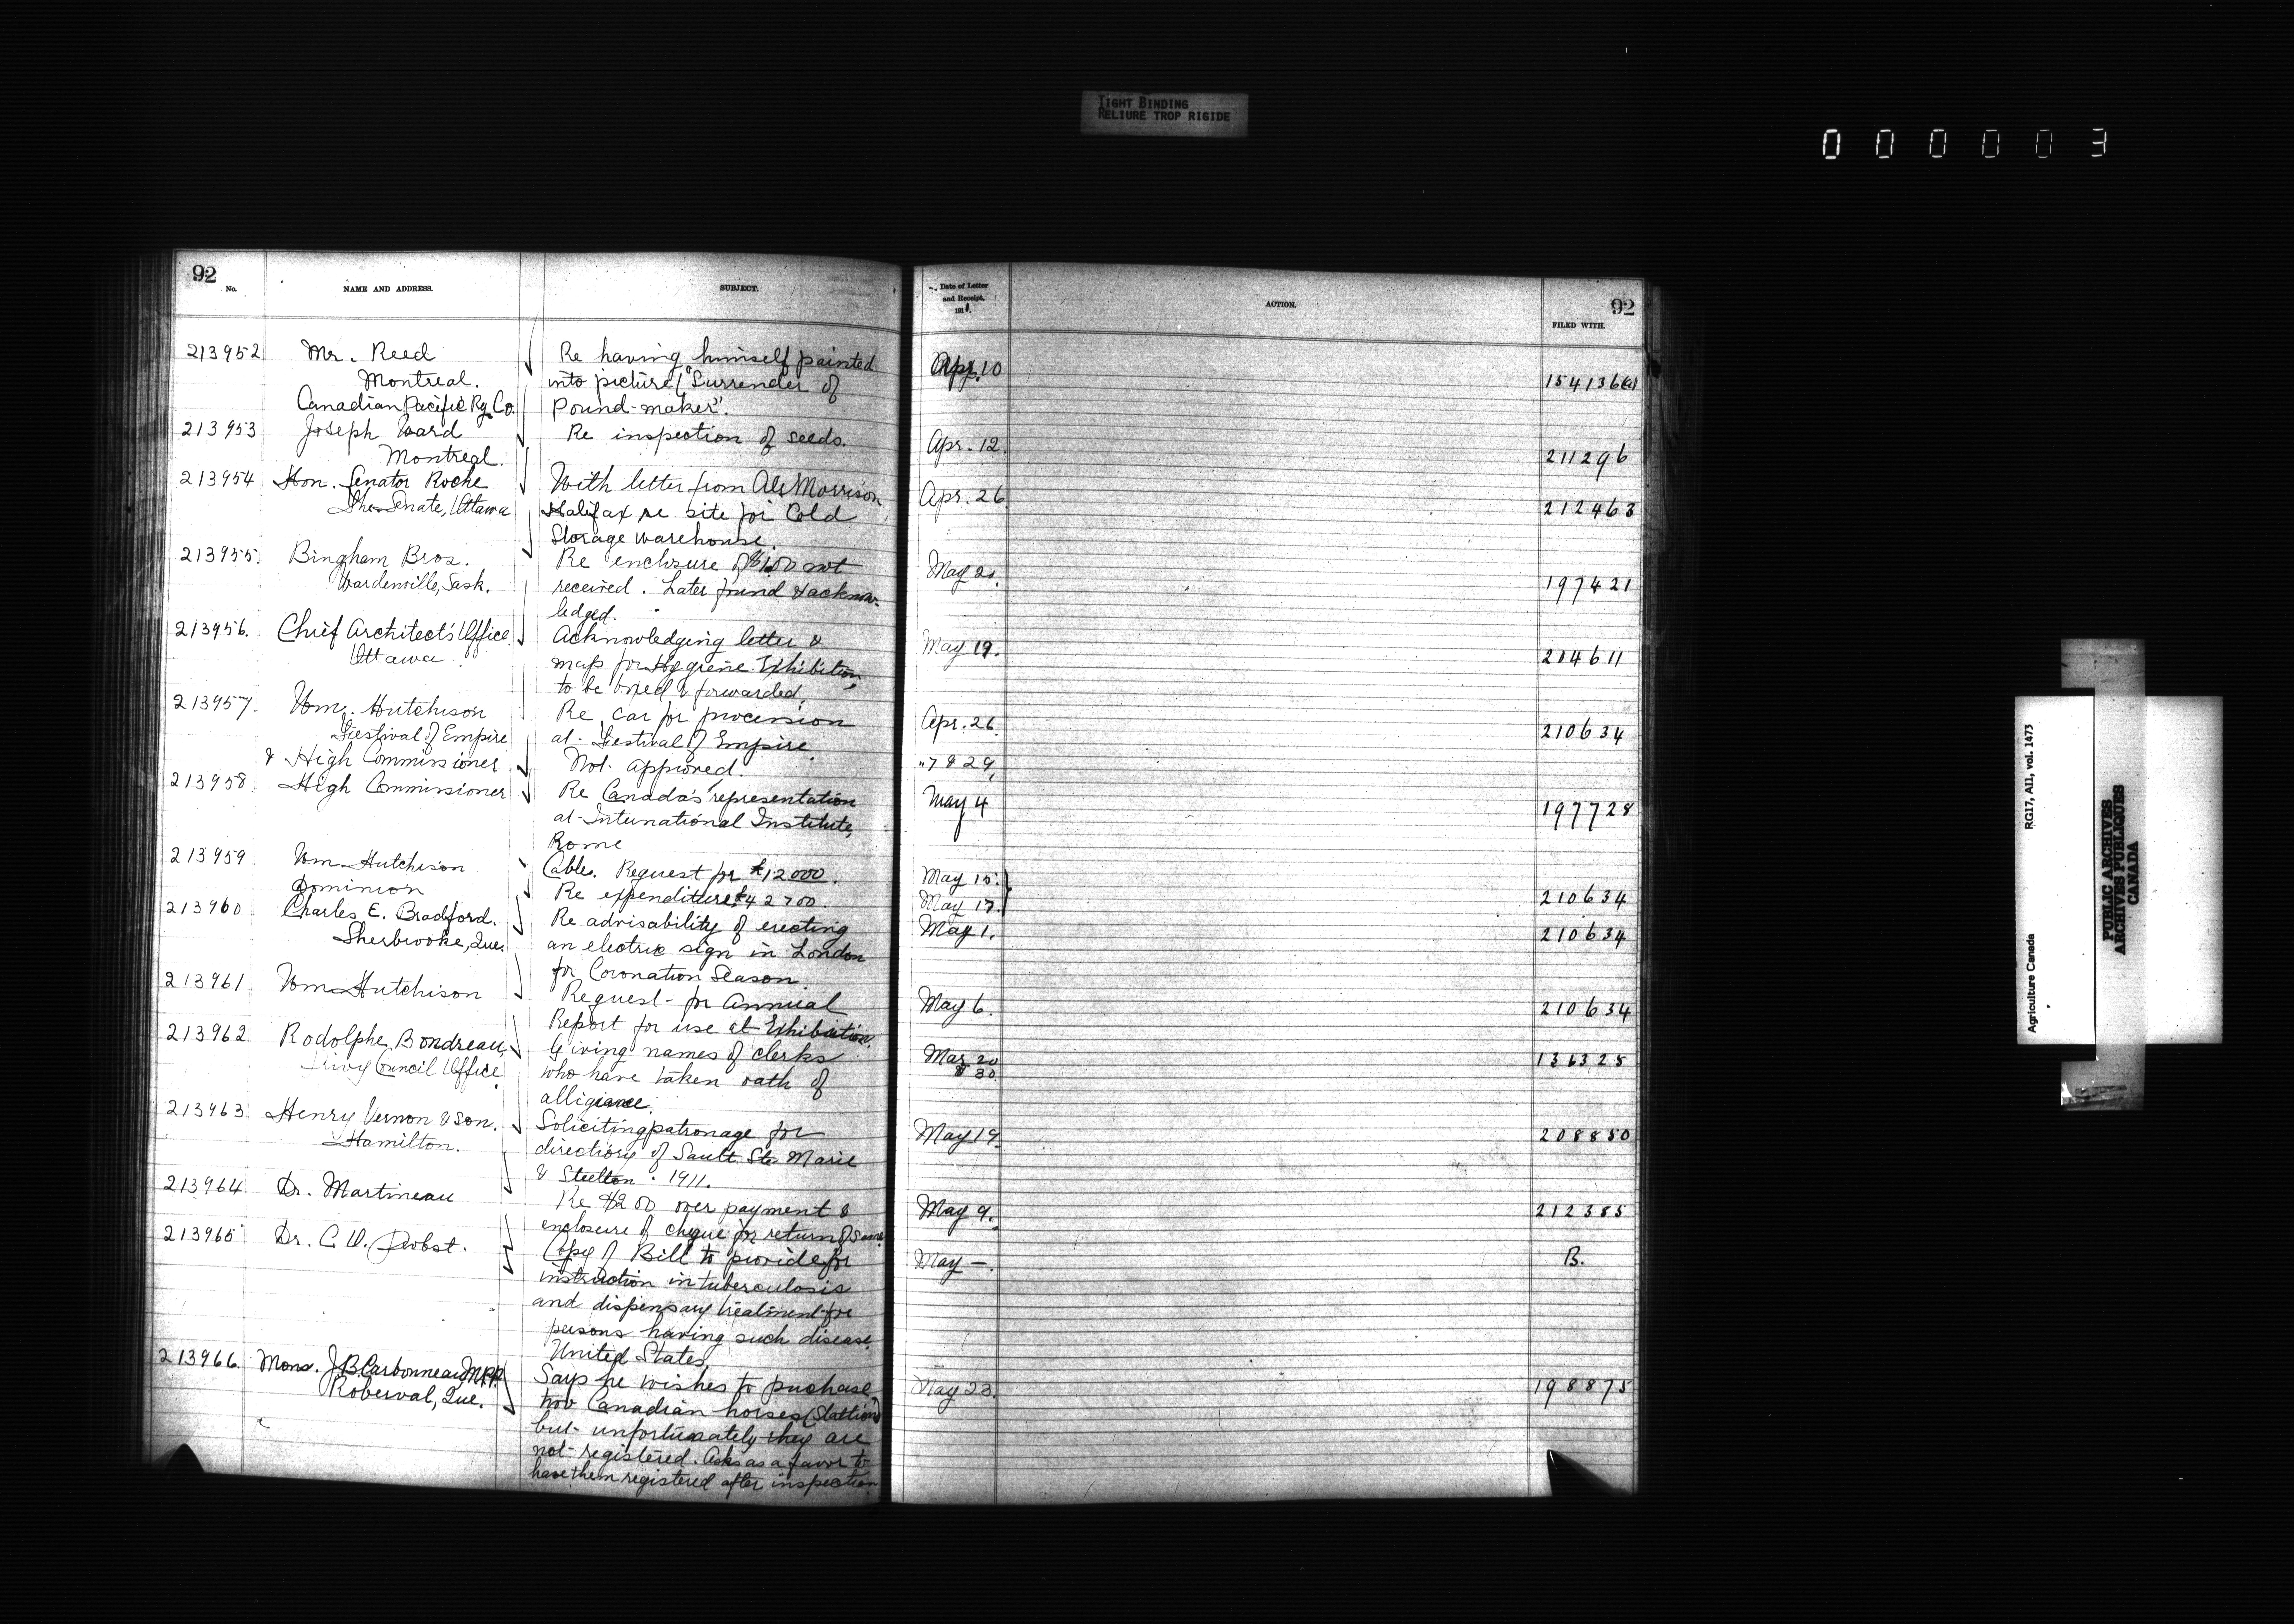 TIGHT BINDING
RELIURE TROP RIGIDE
000003
92
No.
NAME AND ADDRESS.
SUBJECT.
213952 Mr. Reed Re having himself painted
Montreal. into picture "Surrender of
Canadian Pacific Ry. Co. Pound-maker".
213953 Joseph Ward Re inspection of seeds.
Montreal.
213954 Hon. Senator Roche With letter from Morrison
The Senate, Ottawa Halifax re site for Cold
Storage warehouse.
213955. Bingham Bros. Re enclosure of $1.00 not
Wardenville, Sask. received. Later found & acknow-
ledged.
213956. Chief Architect's Office Acknowledging letter &
Ottawa map for Hygiene Exhibition
to be boxed & forwarded.
213957. Wm. Hutchison Re car for procession
Festival of Empire at Festival of Empire
& High Commissioner Not approved.
213958. High Commissioner Re Canada's representation
at International Institute,
Rome
213959 Wm Hutchison Cable. Request for $12000.
Dominion Re expenditure $42700.
213960 Charles E. Bradford. Re advisability of erecting
Sherbrooke, Que. an electric sign in London
for Coronation Season
213961 Wm Hutchison Request for Annual
Report for use at Exhibition.
213962 Rodolphe Bondreau, Giving names of clerks
Privy Council Office who have taken oath of
alligiance.
213963 Henry Vernon & Son. Soliciting patronage for
Hamilton. directory of Sault Ste Marie
& Steelton. 1911.
213964 Dr. Martineau Re $2.00 over payment &
enclosure of cheque for return of same
213965 Dr. C. Copy of Bill to provide for
instruction in tuberculosis
and dispensary treatment for
persons having such disease
United States
213966. Mons. J.B. Carbonneau M.P.P. Says he wishes to puchase
Roberval, Que. two Canadian horses (Stallions)
but unfortunately they are
not registered. Asks as a favor to
have them registered after inspection
Date of Letter
and Receipt,
191
ACTION.
FILED WITH.
92
Apr. 10 154136(a)
Apr. 12 211296
Apr. 26 212463
May 20. 197421
May 19. 204611
Apr. 26 210634
" 7 & 29,
May 4 197728
May 15.
May 17. 210634
May 1. 210634
May 6. 210634
Mar 20 136325
& 30.
May 19. 208850
May 9. 212385
May —. B.
May 23. 198875
Agriculture Canada RG17, AII1, vol. 1473
PUBLIC ARCHIVES
ARCHIVES PUBLIQUES
CANADA